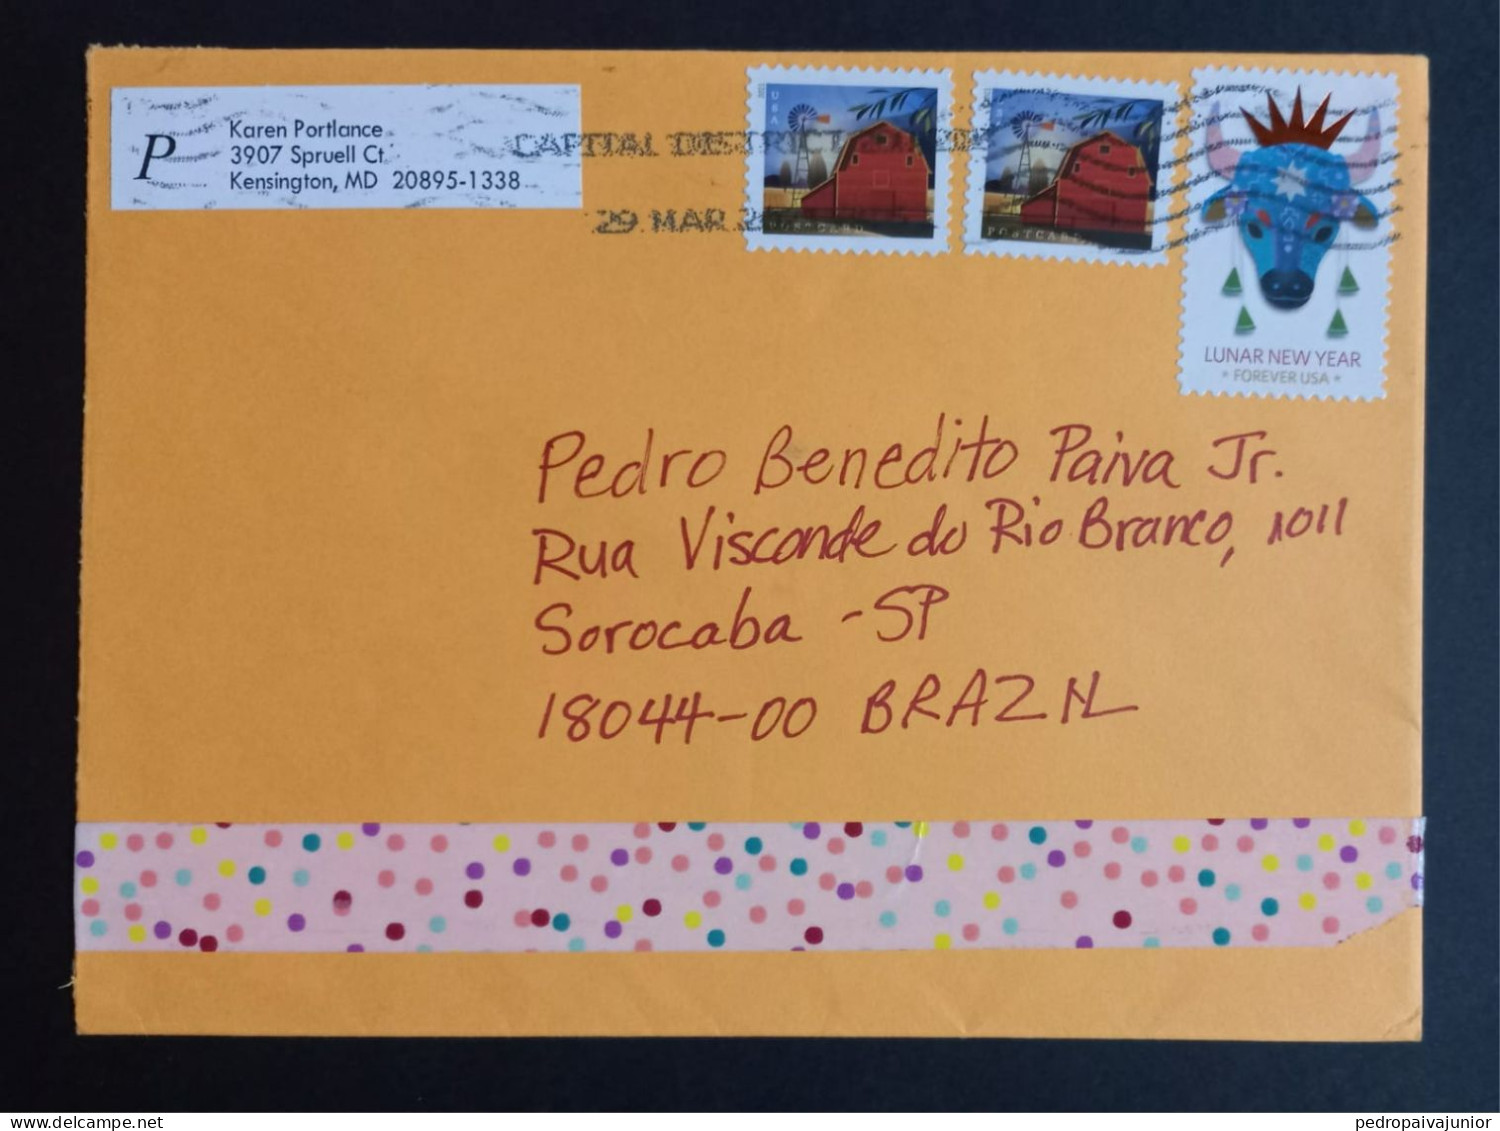 P
Karen Portlance
3907 Spruell Ct.
Kensington, MD 20895-1338
CAPITAL DISTRICT
29 MAR
2021 USA
POSTCARD
POSTCARD
LUNAR NEW YEAR
* FOREVER USA *
Pedro Benedito Paiva Jr.
Rua Visconde do Rio Branco, 1011
Sorocaba - SP
18044-00 BRAZIL
www.delcampe.net
pedropaivajunior